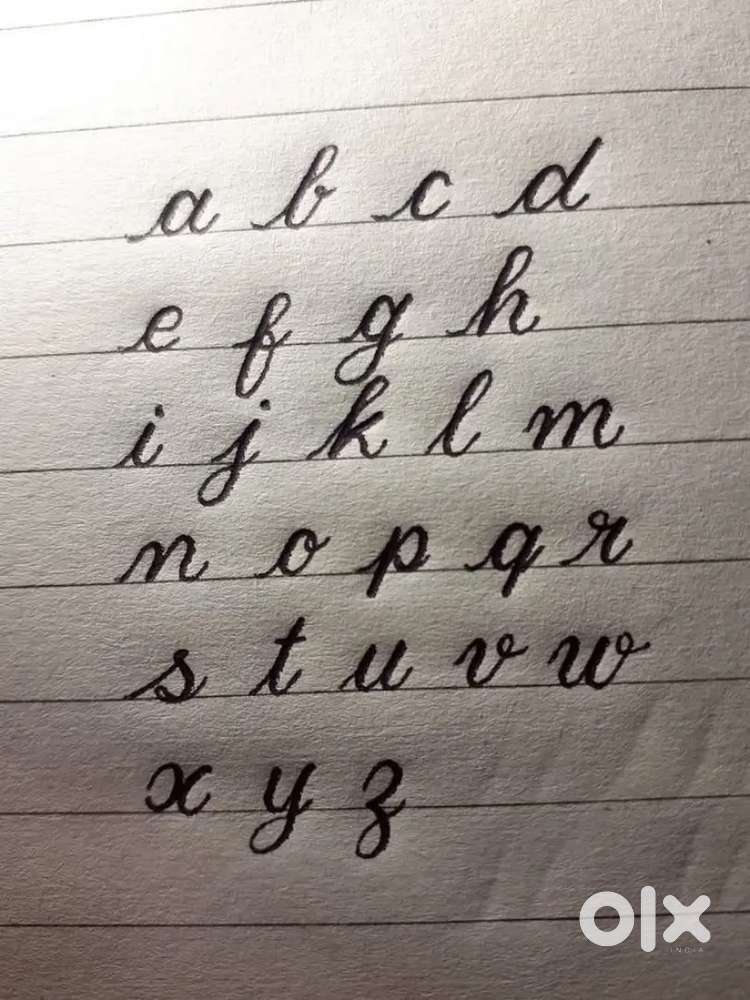 a b c d
e f g h
i j k l m
n o p q r
s t u v w
x y z
olx
INDIA